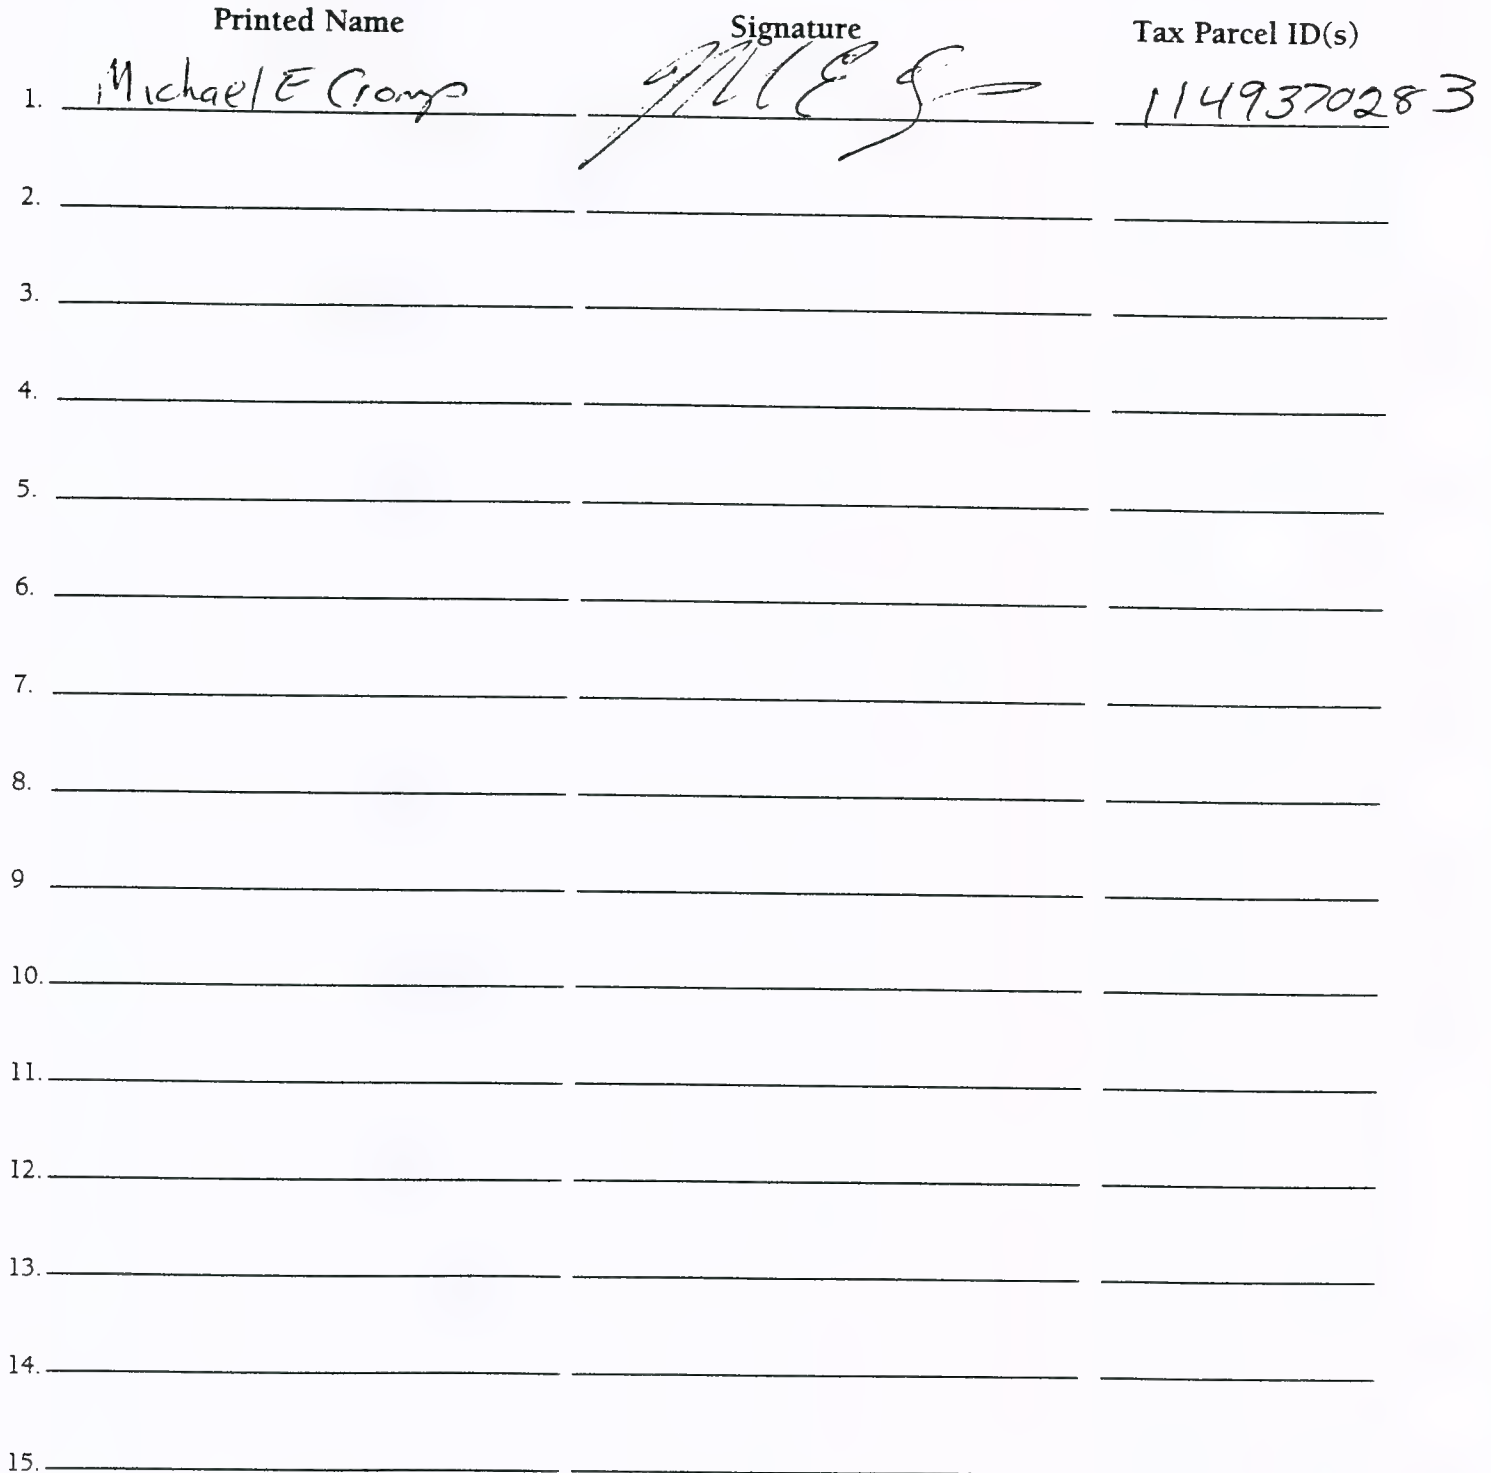 Printed Name Signature Tax Parcel ID(s)
1. Michael E Cromp 1149370283
2.
3.
4.
5.
6.
7.
8.
9
10.
11.
12.
13.
14.
15.